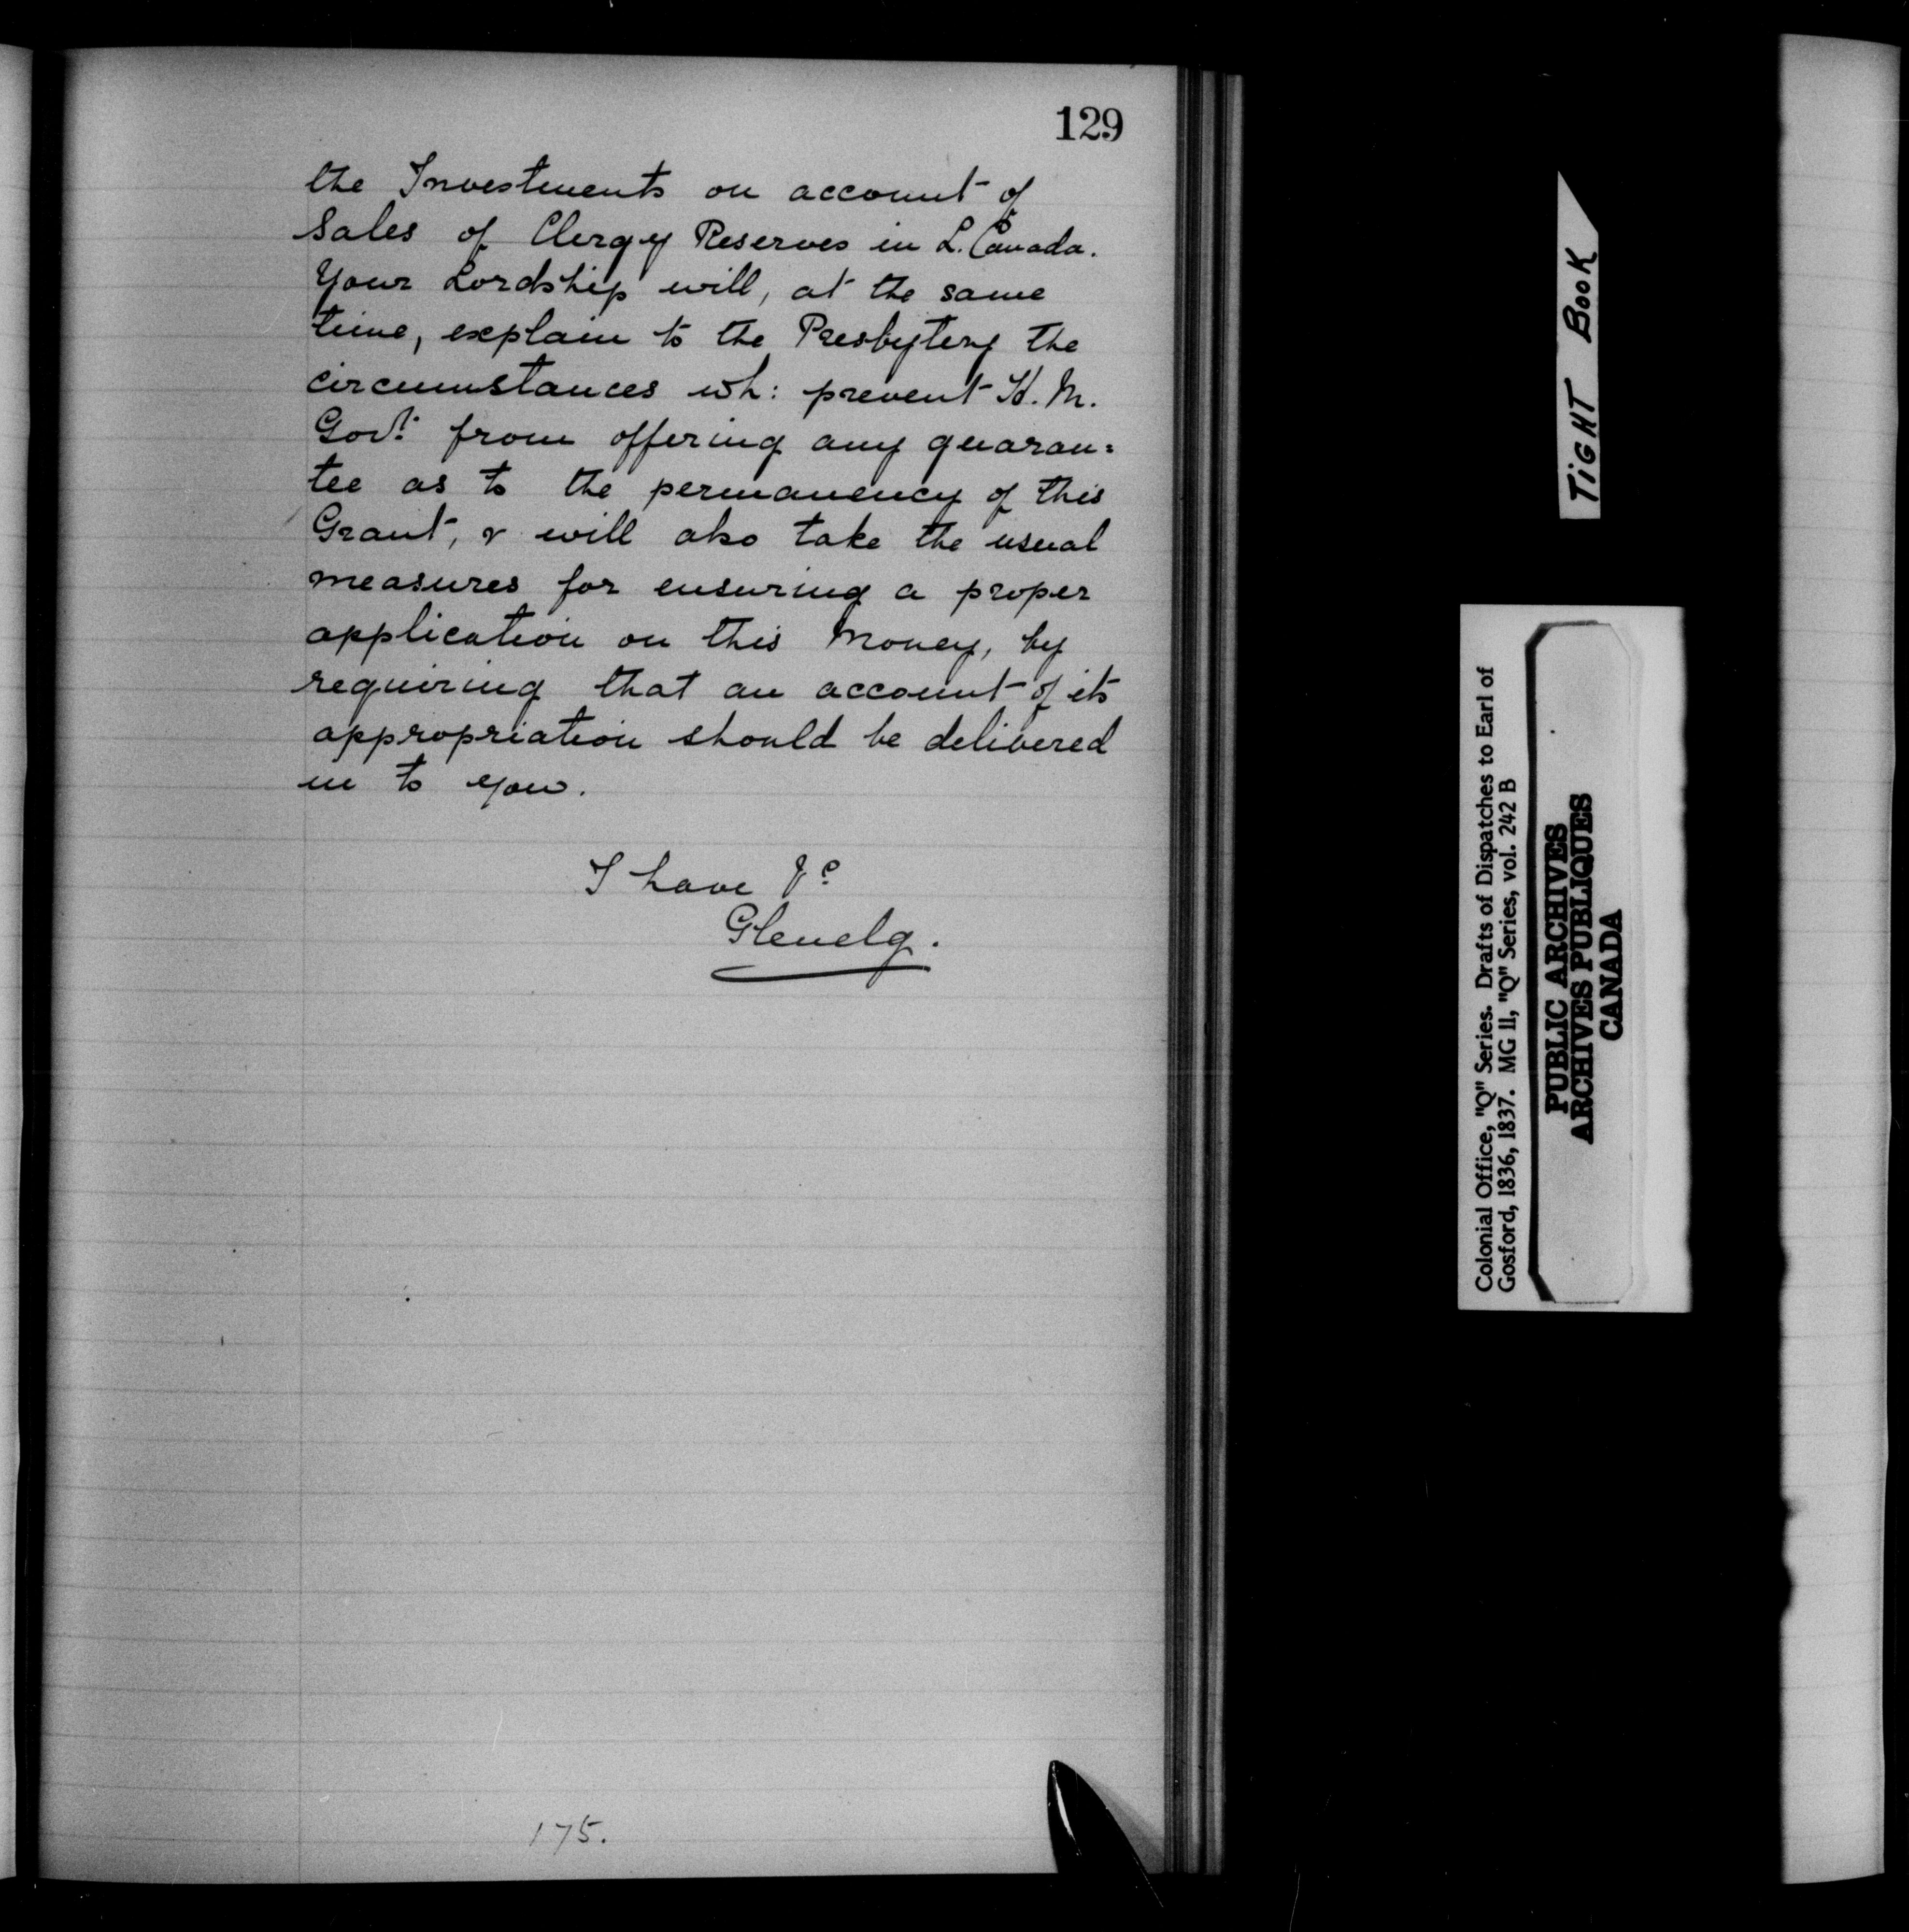 129
the Investments on account of
Sales of Clergy Reserves in L. Canada.
Your Lordship will, at the same
time, explain to the Presbytery the
circumstances wh: prevent H. M.
Govt. from offering any guaran=
tee as to the permanency of this
Grant, & will also take the usual
measures for ensuring a proper
application on this money, by
requiring that an account of its
appropriation should be delivered
in to you.
I have &c
Glenelg.
175.
TIGHT BOOK
Colonial Office, "Q" Series. Drafts of Dispatches to Earl of
Gosford, 1836, 1837. MG 11, "Q" Series, vol. 242 B
PUBLIC ARCHIVES
ARCHIVES PUBLIQUES
CANADA